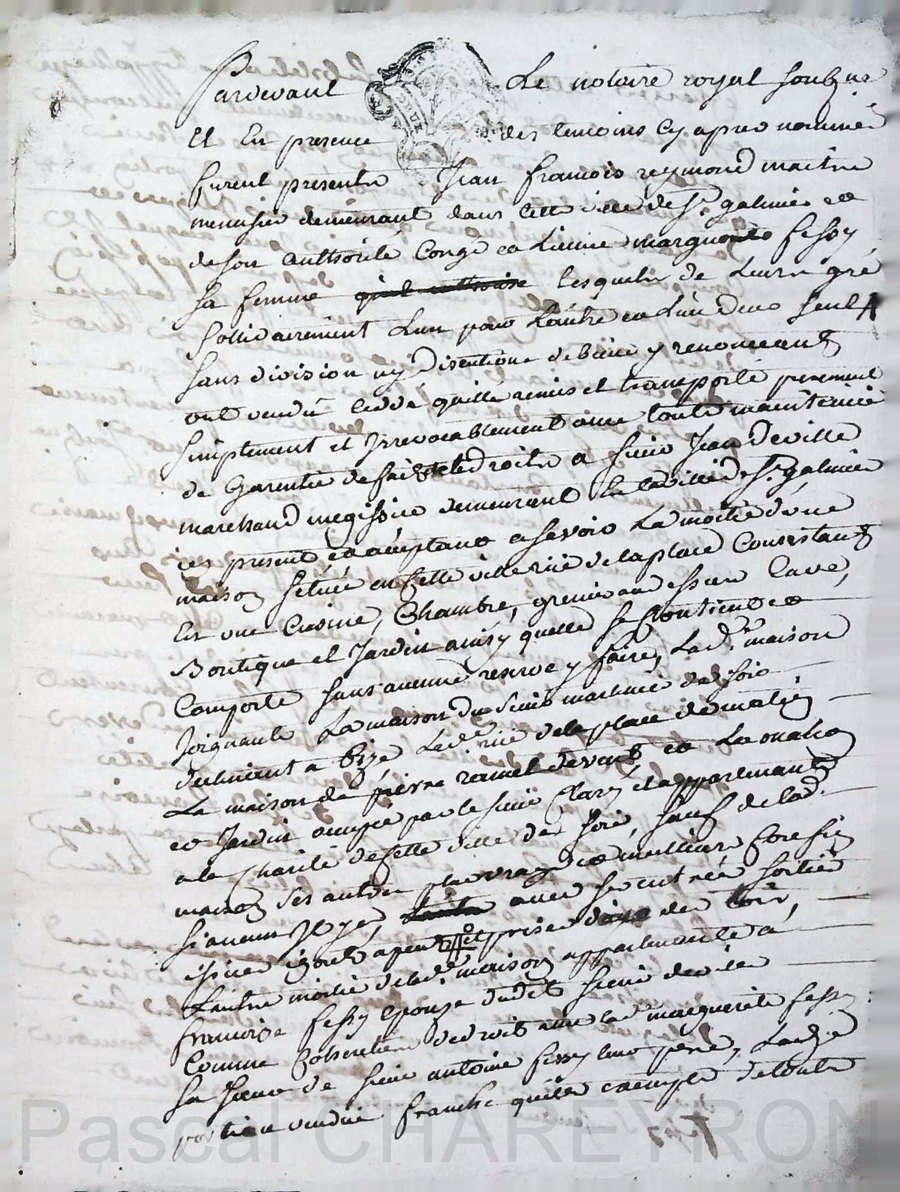 Pardevant Le notoire royal soubzne
Et En presence des temoins cy apres nommés
furent presents Jean francois reymond maitre
menusier demeurant dans cette ville de St galmier et
de son authorité Congé et Licence marguerite fessy
sa femme lesquels de Leurs gré
Solidairement Lun pour Lautre et L'un deux seul
sans division ny discution de biens y renonceant
ont vendu ceddé quitté remis et transporté purement
simplement et Irrevocablement avec toute maintenue
de Garentie de fait et de droits a sieur Jean Deville
marchand megissier demeurant La ville de St galmier
icy present et acceptant a scavoir La moitié d'une
maison scituée en cette ville rue de la place Consistant
En une Cuisine, Chambre, grenier au dessus Cave,
Boutique et Jardin ainsy quelle se Contient et
Comporte sans aucune reserve y faire, La de maison
Joignant La maison du sieur de soir
de bize Lade rue de la place de matin
La maison de pierre et
et Jardin occupé par le sieur et appartenant
a la Charité de cette ville de soir, sauf de lad
maison ses autres plus vrays et meilleurs Confins
si aucuns Il y a, avec ses entrée sorties
issues et prise
Lautre moitié de lade maison appartenante a
francoise fessy Epouse dudit sieur deville
Comme de droit avec lad marguerite fessy
sa soeur de sieur antoine fessy Leur pere, Lade
portion vendue franche quitte et exempte de toute
Pascal CHAREYRON